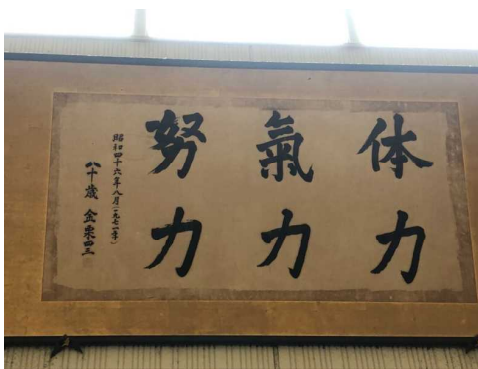 体力
氣力
努力
昭和四十六年八月(一九七一年)
八十歳 金栗四三